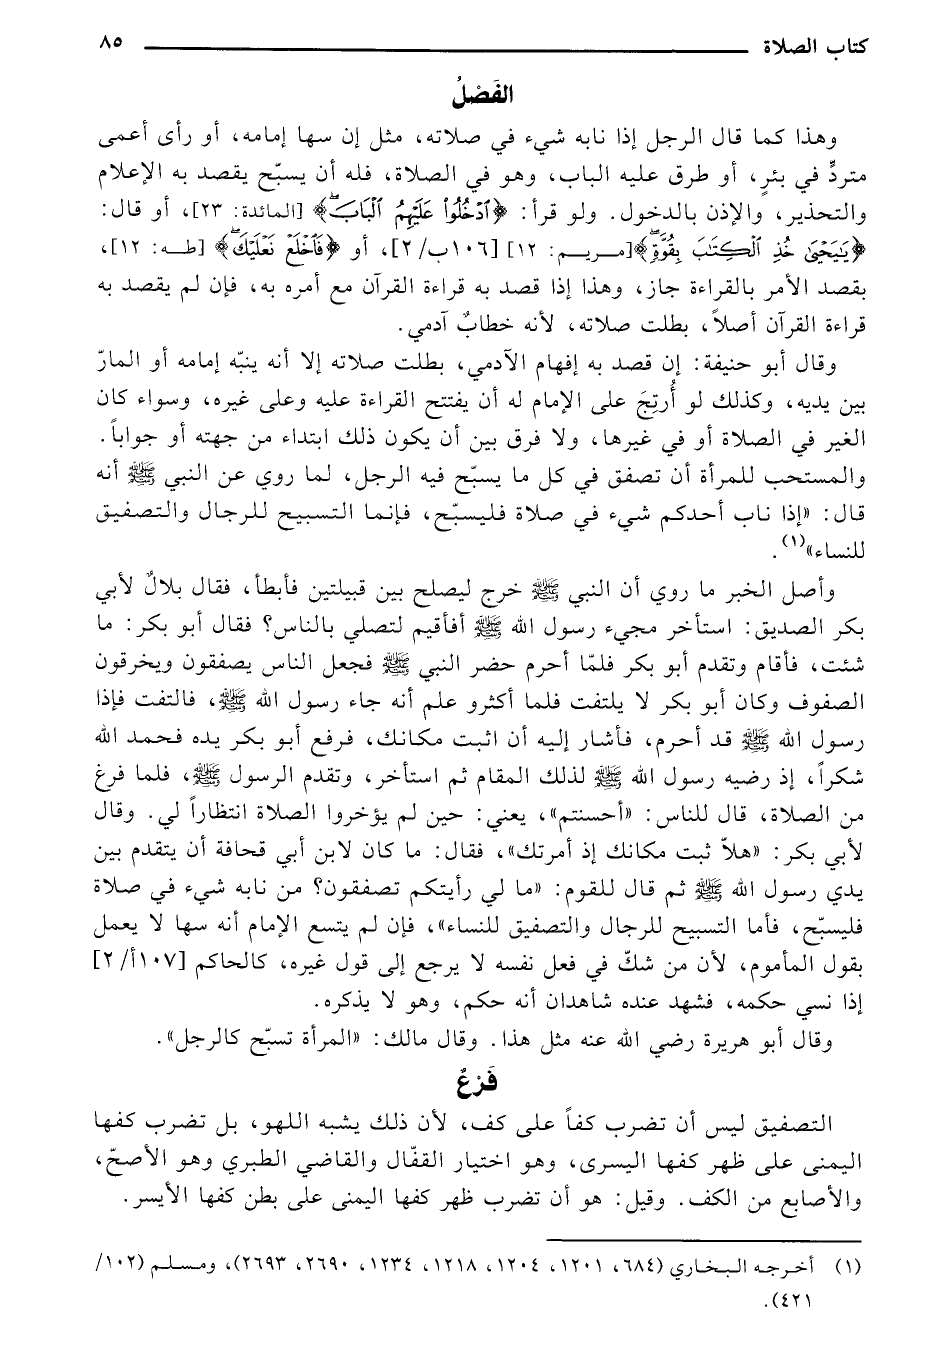 كتاب الصلاة ٨٥
الفَصْلُ
وهذا كما قال الرجل إذا نابه شيء في صلاته، مثل إن سها إمامه، أو رأى أعمى
متردٍّ في بئرٍ، أو طرق عليه الباب، وهو في الصلاة، فله أن يسبّح يقصد به الإعلام
والتحذير، والإذن بالدخول. ولو قرأ: ﴿ٱدْخُلُوا۟ عَلَيْهِمُ ٱلْبَابَ﴾ [المائدة: ٢٣]، أو قال:
﴿يَٰيَحْيَىٰ خُذِ ٱلْكِتَٰبَ بِقُوَّةٍ﴾[مريم: ١٢] [١٠٦ب/ ٢]، أو ﴿فَٱخْلَعْ نَعْلَيْكَ﴾ [طه: ١٢]،
بقصد الأمر بالقراءة جاز، وهذا إذا قصد به قراءة القرآن مع أمره به، فإن لم يقصد به
قراءة القرآن أصلاً، بطلت صلاته، لأنه خطابٌ آدمي.
وقال أبو حنيفة: إن قصد به إفهام الآدمي، بطلت صلاته إلا أنه ينبّه إمامه أو المارّ
بين يديه، وكذلك لو أُرتِجَ على الإمام له أن يفتتح القراءة عليه وعلى غيره، وسواء كان
الغير في الصلاة أو في غيرها، ولا فرق بين أن يكون ذلك ابتداء من جهته أو جواباً.
والمستحب للمرأة أن تصفق في كل ما يسبّح فيه الرجل، لما روي عن النبي ﷺ أنه
قال: «إذا ناب أحدكم شيء في صلاة فليسبّح، فإنما التسبيح للرجال والتصفيق
للنساء»(١).
وأصل الخبر ما روي أن النبي ﷺ خرج ليصلح بين قبيلتين فأبطأ، فقال بلالٌ لأبي
بكر الصديق: استأخر مجيء رسول الله ﷺ أفأقيم لتصلي بالناس؟ فقال أبو بكر: ما
شئت، فأقام وتقدم أبو بكر فلمّا أحرم حضر النبي ﷺ فجعل الناس يصفقون ويخرقون
الصفوف وكان أبو بكر لا يلتفت فلما أكثرو علم أنه جاء رسول الله ﷺ، فالتفت فإذا
رسول الله ﷺ قد أحرم، فأشار إليه أن اثبت مكانك، فرفع أبو بكر يده فحمد الله
شكراً، إذ رضيه رسول الله ﷺ لذلك المقام ثم استأخر، وتقدم الرسول ﷺ، فلما فرغ
من الصلاة، قال للناس: «أحسنتم»، يعني: حين لم يؤخروا الصلاة انتظاراً لي. وقال
لأبي بكر: «هلاّ ثبت مكانك إذ أمرتك»، فقال: ما كان لابن أبي قحافة أن يتقدم بين
يدي رسول الله ﷺ ثم قال للقوم: «ما لي رأيتكم تصفقون؟ من نابه شيء في صلاة
فليسبّح، فأما التسبيح للرجال والتصفيق للنساء»، فإن لم يتسع الإمام أنه سها لا يعمل
بقول المأموم، لأن من شكّ في فعل نفسه لا يرجع إلى قول غيره، كالحاكم [١٠٧أ/ ٢]
إذا نسي حكمه، فشهد عنده شاهدان أنه حكم، وهو لا يذكره.
وقال أبو هريرة رضي الله عنه مثل هذا. وقال مالك: «المرأة تسبّح كالرجل».
فَرْعٌ
التصفيق ليس أن تضرب كفاً على كف، لأن ذلك يشبه اللهو، بل تضرب كفها
اليمنى على ظهر كفها اليسرى، وهو اختيار القفّال والقاضي الطبري وهو الأصحّ،
والأصابع من الكف. وقيل: هو أن تضرب ظهر كفها اليمنى على بطن كفها الأيسر.
(١) أخرجه البخاري (٦٨٤، ١٢٠١، ١٢٠٤، ١٢١٨، ١٢٣٤، ٢٦٩٠، ٢٦٩٣)، ومسلم (١٠٢/
٤٢١).